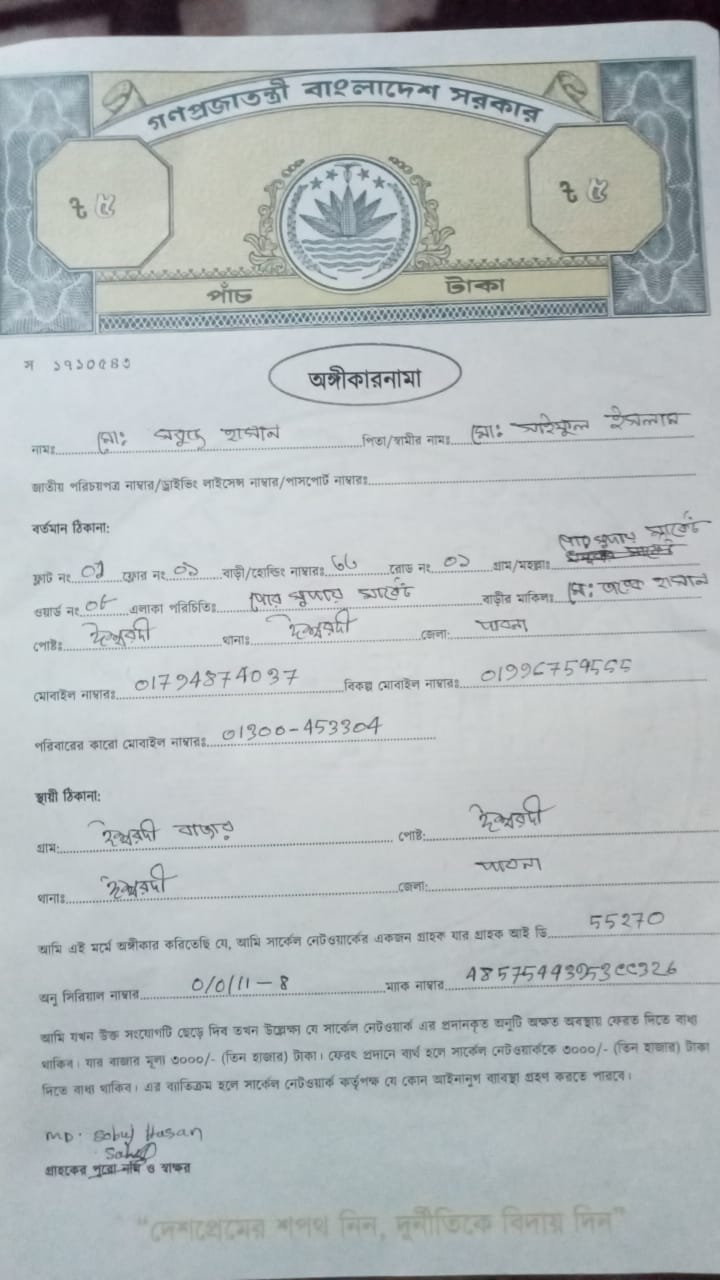 গণপ্রজাতন্ত্রী বাংলাদেশ সরকার
৳ ৫ ৳ ৫
পাঁচ টাকা
স ১৭১০৫৪৩
অঙ্গীকারনামা
নামঃ মো: সবুজ হাসান পিতা/স্বামীর নামঃ মো: সাইফুল ইসলাম
জাতীয় পরিচয়পত্র নাম্বার/ড্রাইভিং লাইসেন্স নাম্বার/পাসপোর্ট নাম্বারঃ
বর্তমান ঠিকানা:
ফ্লাট নং ফ্লোর নং ০১ বাড়ী/হোল্ডিং নাম্বারঃ ৬৬ রোড নং ০১ গ্রাম/মহল্লাঃ সুপার মার্কেট
ওয়ার্ড নং এলাকা পরিচিতিঃ পৌর সুপার মার্কেট বাড়ীর মালিকঃ হাসান
পোষ্টঃ ঈশ্বরদী থানাঃ ঈশ্বরদী জেলা: পাবনা
মোবাইল নাম্বারঃ 01794874037 বিকল্প মোবাইল নাম্বারঃ
পরিবারের কারো মোবাইল নাম্বারঃ 01300-453304
স্থায়ী ঠিকানা:
গ্রাম: ঈশ্বরদী বাজার পোষ্ট: ঈশ্বরদী
থানাঃ ঈশ্বরদী জেলা: পাবনা
আমি এই মর্মে অঙ্গীকার করিতেছি যে, আমি সার্কেল নেটওয়ার্কের একজন গ্রাহক যার গ্রাহক আই ডি 55270
অনু সিরিয়াল নাম্বার 0/0/11-8 ম্যাক নাম্বার
আমি যখন উক্ত সংযোগটি ছেড়ে দিব তখন উল্লেক্ষ্য যে সার্কেল নেটওয়ার্ক এর প্রদানকৃত অনুটি অক্ষত অবস্থায় ফেরত দিতে বাধ্য
থাকিব। যার বাজার মূল্য ৩০০০/- (তিন হাজার) টাকা। ফেরৎ প্রদানে ব্যর্থ হলে সার্কেল নেটওয়ার্ককে ৩০০০/- (তিন হাজার) টাকা
দিতে বাধ্য থাকিব। এর ব্যতিক্রম হলে সার্কেল নেটওয়ার্ক কর্তৃপক্ষ যে কোন আইনানুগ ব্যাবস্থা গ্রহণ করতে পারবে।
MD. Sobuj Hasan
গ্রাহকের পুরো নাম ও স্বাক্ষর
"দেশপ্রেমের শপথ নিন, দুর্নীতিকে বিদায় দিন"